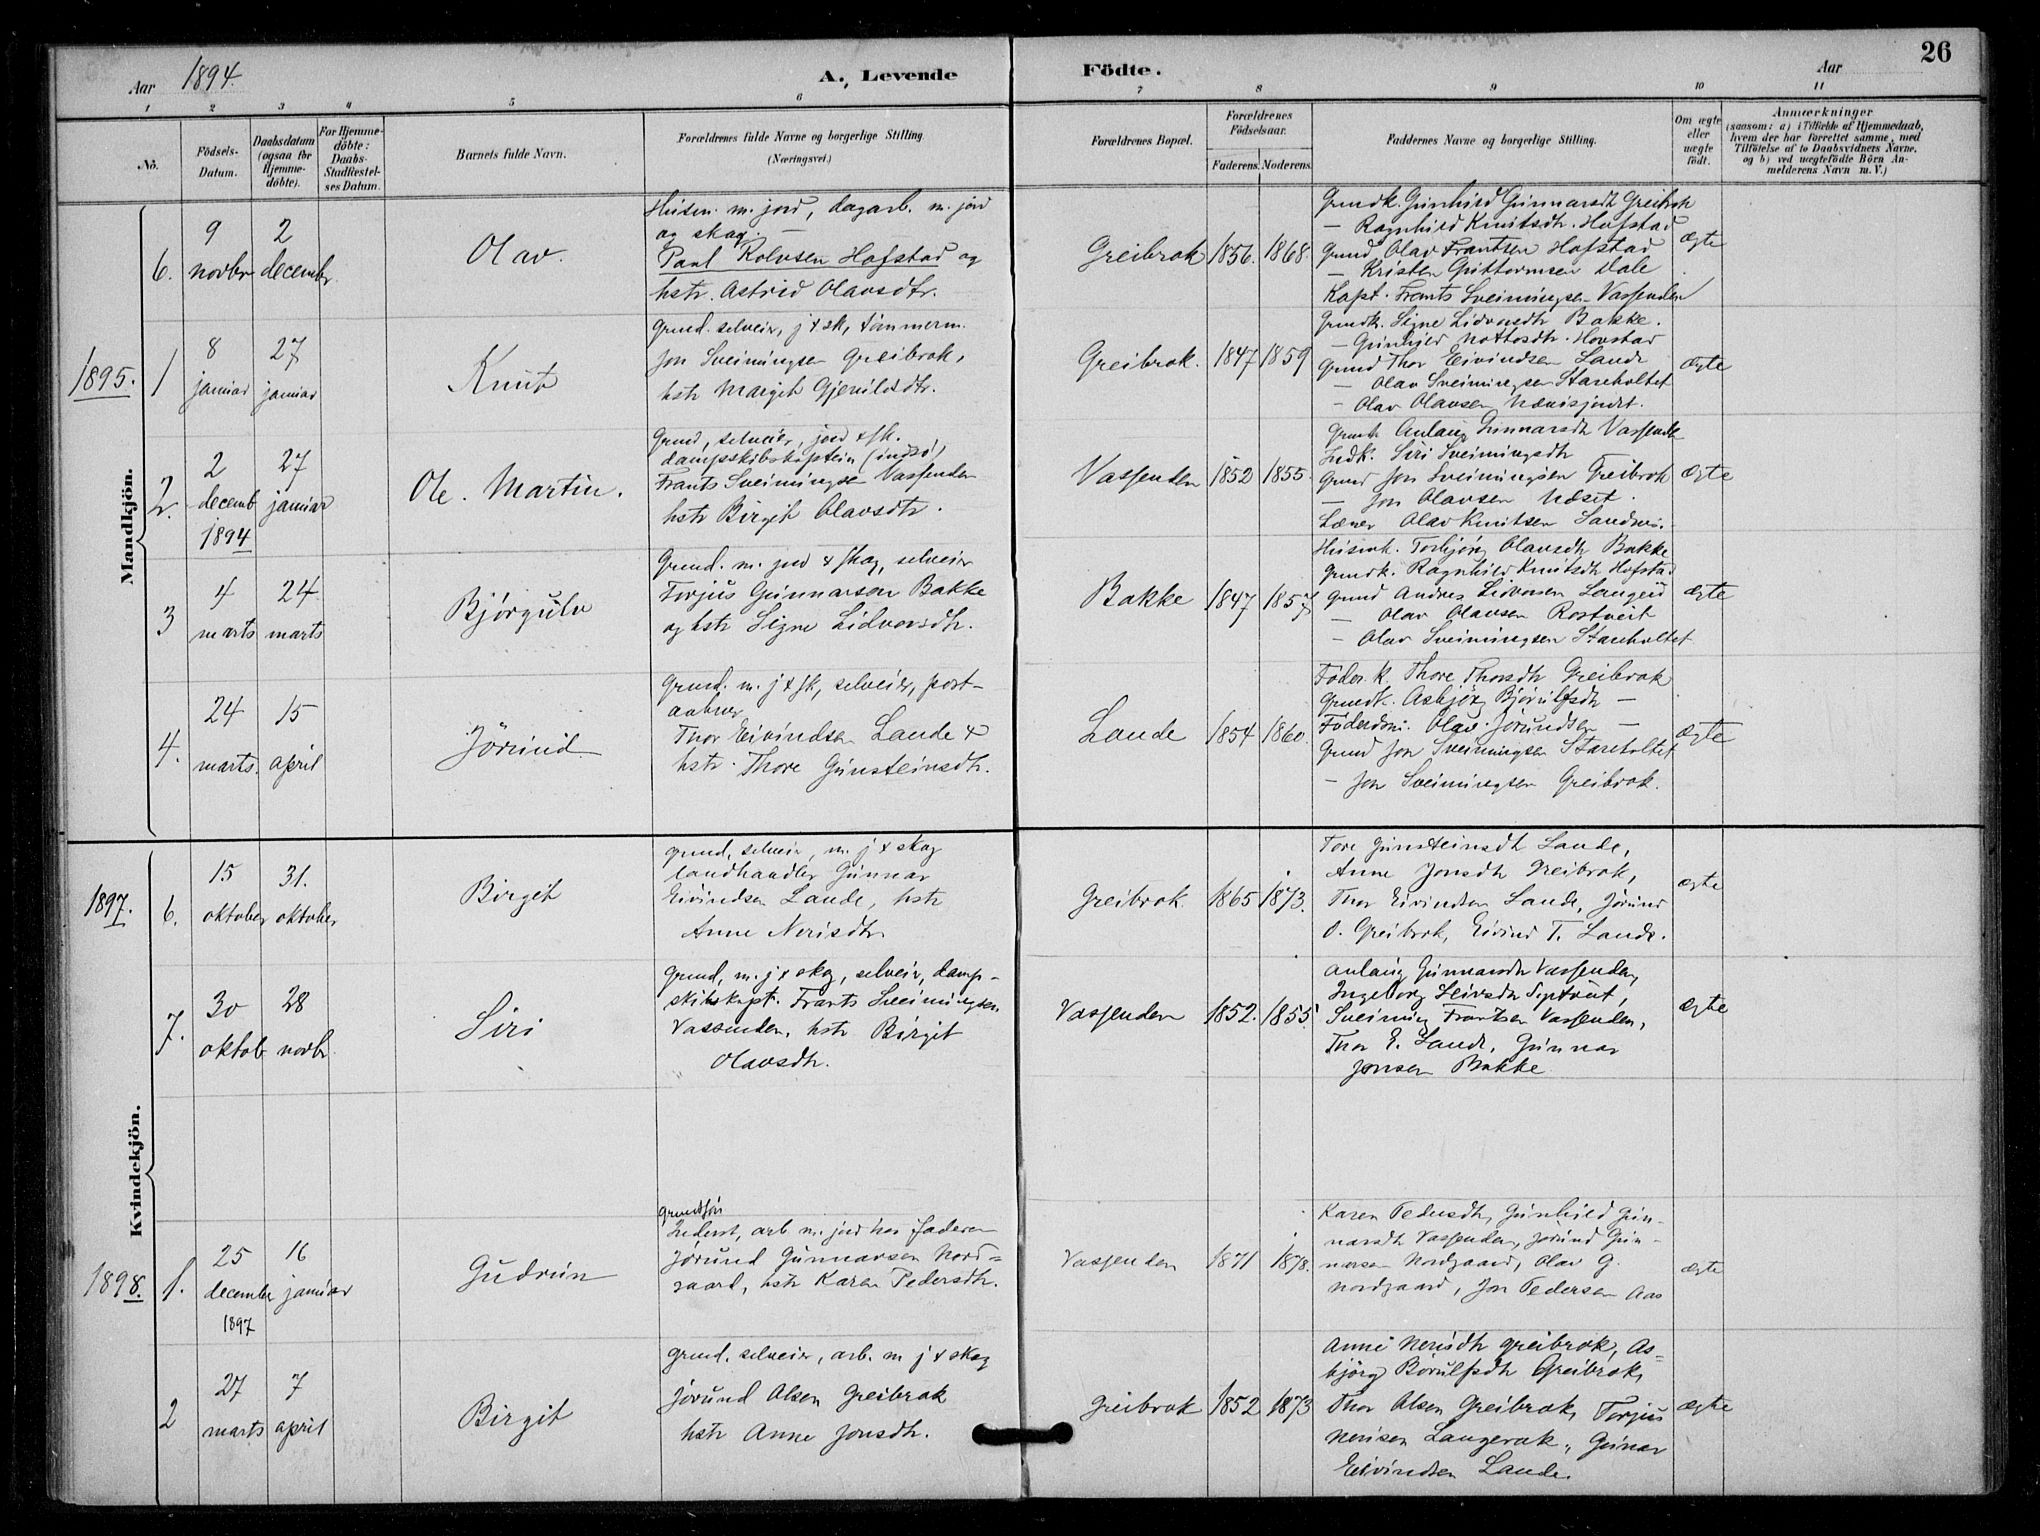 Aar 1894. A, Levende Födte. Aar 26
1 2 3 4 5 6 7 8 9 10 11
No.
Födsels-Datum.
Daabsdatum (ogsaa for Hjemme-döbte).
For Hjemme-döbte: Daabs-Stadfæstel-ses Datum.
Barnets fulde Navn.
Forældrenes fulde Navne og borgerlige Stilling (Næringsvei.)
Forældrenes Bopæl.
Forældrenes Födselsaar.
Faderens. Moderens.
Faddernes Navne og borgerlige Stilling.
Om ægte eller uægte födt.
Anmærkninger
(saasom: a) i Tilfælde af Hjemmedaab,
hvem der har forrettet samme, med
Tilföielse af to Daabsvidners Navne,
og b) ved uægtefödte Börn An-
melderens Navn m. V.)
Mandkjön.
6.
9 novbr
2 decembr.
Olav.
Husm. m. jord, dagarb. m. jord
og skog. —
Paul Rolvsen Hofstad og
hstr. Astrid Olavsdtr.
Greibrok 1856. 1868.
Grundk. Gunhild Gunnarsdt Greibrok
— Ragnhild Knutsdtr. Hofstad
Grund Olav Frantsen Hofstad
— Kristen Guttormsen Dale
Kapt. Frants Sveinungsen Vassenden
ægte
1895.
1
8 januar
27 januar
Knut
Grund. selveier, j & sk, tømmerm.
Jon Sveinungsen Greibrok,
hstr Margit Gjenildsdtr.
Greibrok. 1847 1859
Grundk. Signe Lidvorsdtr Bakke.
— Gunhild Nottosdtr. Hovstad
Grund Thor Eivindsen Lande
— Olav Sveinungsen Stareholtet
— Olav Olavsen
ægte
2.
2 decemb 1894
27 januar
Ole. Martin.
Grund, selveier, jord & sk.
dampskibskaptein (indsø)
Frants Sveinungse Vassenden
hstr Birgit Olavsdtr.
Vassenden 1852 1855.
Grundk Anlaug Gunnarsdtr Vassende
Indk. Siri Sveinungsdtr
Grund Jon Sveinungsen Greibrok
— Jon Olavsen Næset.
Lærer Olav Knutsen Sandnes.
ægte
3
4 marts
24 marts
Bjørgulv
Grund. m. jord & skog, selveier
Torjus Gunnarsen Bakke
og hstr Signe Lidvorsdtr.
Bakke 1847 1857
Husmk. Torbjørg Olavsdtr Bakke
Grundk. Ragnhild Knutsdtr Hofstad
Grund Andres Lidvorsen Langeid
— Olav Olavsen Rostveit
— Olav Sveinungsen Stareholtet
ægte
4.
24 marts.
15 april
Jørund
Grund. m. j & sk, selveier, post-
aabner
Thor Eivindsen Lande &
hstr. Thore Gunsteinsdtr.
Lande 1854 1860
Føder.k. Thore Thorsdtr Greibrok
Grundk. Asbjørg Bjørulfsdtr —
Føderdsm. Olav Jørundsen —
Grund Jon Sveinungsen Stareholtet
— Jon Sveinungsen Greibrok.
ægte
Kvindekjön.
1897.
6.
15 oktober
31. oktober
Birgit
Grund, selveier, m. j & skog
landhandler Gunnar
Eivindsen Lande, hstr
Anne Nerisdtr
Greibrok. 1865 1873.
Tore Gunsteinsdt Lande,
Anne Jonsdtr Greibrok,
Thor Eivindsen Lande, Jørund
O. Greibrok, Eivind T. Lande.
ægte
7.
30 oktob
28 novbr.
Siri
Grund, m. j & skog, selveier, damp-
skibskapt. Frants Sveinungsen
Vassenden, hstr Birgit
Olavsdtr.
Vassenden 1852. 1855
Anlaug Gunnarsdtr Vassenden,
Ingeborg Leivsdtr
Sveinung Frantsen Vassenden,
Thor E. Lande, Gunnar
Jonsen Bakke
ægte
1898.
1.
25 december 1897
16 januar
Gudrun
Grundsøn
Inderst, arb m. jord hos faderen
Jørund Gunnarsen Nord=
gaard, hstr Karen Pedersdtr.
Vassenden 1871 1878.
Karen Pedersdtr, Gunhild Gun-
narsdtr Vassenden, Jørund Gun-
narsen Nordgaard, Olav G.
Nordgaard, Jon Pedersen Aas
ægte
2
27 marts
7 april
Birgit
Grund. selveier, arb. m j & skog
Jørund Olsen Greibrok
hstr Anne Jonsdtr.
Greibrok 1852 1873
Anne Nerisdtr Greibrok, As=
bjørg Børulfsdtr Greibrok,
Thor Olsen Greibrok, Torjus
Nerisen Langerak, Gunnar
Eivindsen Lande.
ægte